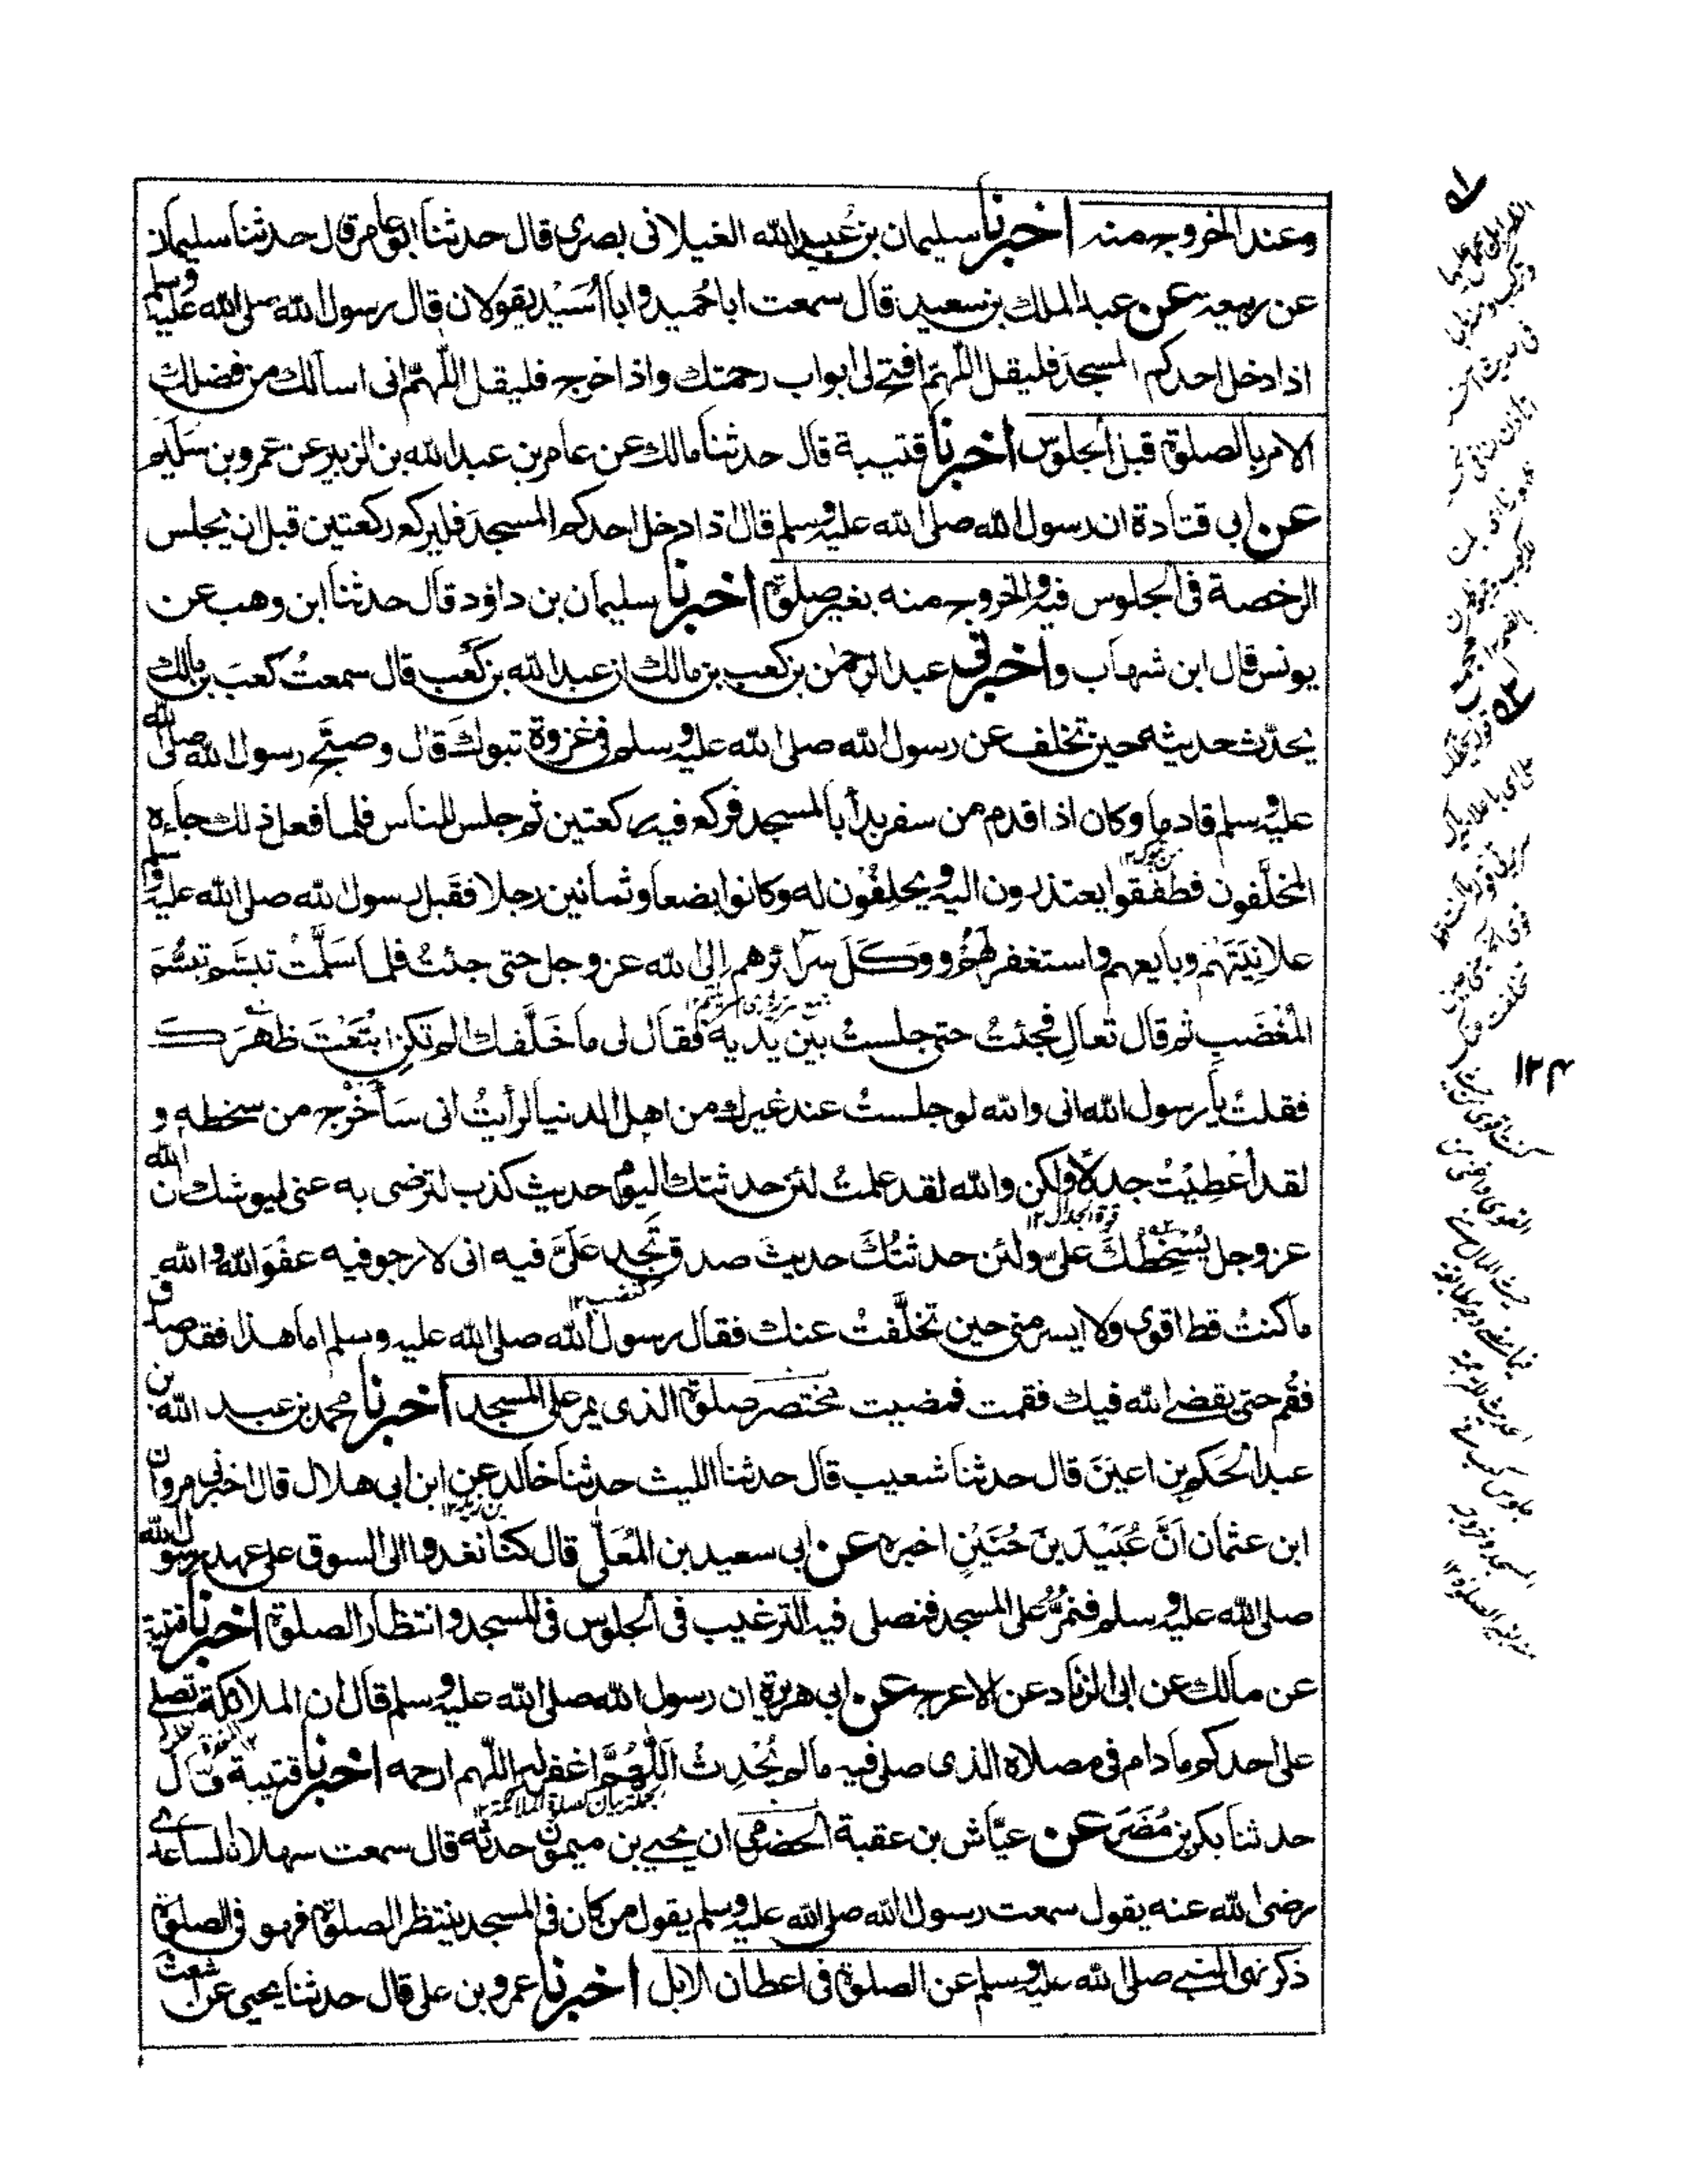 وعند الخروج منه اخبرنا سليمان بن عُبيد الله الغيلانى بصرى قال حدثنا ابو عامر قال حدثنا سليمان
عن ربيعة عن عبد الملك بن سعيد قال سمعت ابا حُميد وابا اُسَيْد يقولان قال رسول الله صلى الله عليه وسلم
اذا دخل احدكم المسجد فليقل اللّٰهمّ افتح لى ابواب رحمتك واذا خرج فليقل اللّٰهمّ انى اسألك من فضلك
الامر بالصلوة قبل الجلوس اخبرنا قتيبة قال حدثنا مالك عن عامر بن عبد الله بن الزبير عن عمرو بن سُلَيم
عن ابى قتادة ان رسول الله صلى الله عليه وسلم قال اذا دخل احدكم المسجد فليركع ركعتين قبل ان يجلس
الرخصة فى الجلوس فيه والخروج منه بغير صلوة اخبرنا سليمان بن داؤد قال حدثنا ابن وهب عن
يونس قال ابن شهاب واخبرنى عبد الرحمٰن بن كعب بن مالك ان عبد الله بن كَعْب قال سمعتُ كعبَ بن مالك
يحدّث حديثه حين تخلف عن رسول الله صلى الله عليه وسلم فى غزوة تبوك قال وصبّح رسول الله صلى الله
عليه وسلم قادما وكان اذا قدم من سفر بدأ بالمسجد فركع فيه ركعتين ثم جلس للناس فلما فعل ذلك جاءه
المخلَّفون فطفقوا يعتذرون اليه ويحلِفُون له وكانوا بضعا وثمانين رجلا فقَبِل رسول الله صلى الله عليه وسلم
علانِيَتَهم وبايعهم واستغفر لهم ووَكَلَ سرآئرهم اِلى الله عز وجل حتى جئتُ فلما سَلَّمْت تبسَّم تبسُّمَ
المُغْضَبِ ثم قال تعالِ فجئتُ حتى جلستُ بين يديه فقال لى ما خَلَّفك الم تكن ابْتَعْتَ ظَهْرَك
فقلتُ يا رسول الله انى والله لو جلستُ عند غيرك من اهل الدنيا لرأيتُ انى سَأَخْرُج من سخطه و
لقد اُعْطِيْتُ جدلاً ولكن والله لقد علمتُ لئن حدثتك اليوم حديث كذب لترضى به عنى ليوشك ان الله
عز وجل يُسْخِطُكَ علىّ ولئن حدثتُكَ حديثَ صدق تَجِد عَلَىَّ فيه انى لارجو فيه عفْوَ الله والله
ما كنتُ قط اقوى ولا ايسر منى حين تخلَّفتُ عنك فقال رسول الله صلى الله عليه وسلم اما هذا فقد صدق
فقُم حتى يقضى الله فيك فقمت فمضيت مختصر صلوة الذى يمر على المسجد اخبرنا محمد بن عبد الله بن
عبد الحَكم بن اعيَنَ قال حدثنا شعيب قال حدثنا الليث حدثنا خالد عن ابن ابى هلال قال اخبرنى مروان
ابن عثمان اَنَّ عُبَيْدَ بنَ حُنَيْنٍ اخبره عن ابى سعيد بن المُعَلّٰى قال كنا نغدوا الى السوق على عهد رسول الله
صلى الله عليه وسلم فنمُرُّ على المسجد فنصلى فيه الترغيب فى الجلوس فى المسجد وانتظار الصلوة اخبرنا قتيبة
عن مالك عن ابى الزناد عن الاعرج عن ابى هريرة ان رسول الله صلى الله عليه وسلم قال ان الملائكة تصلى
على احدكم ما دام فى مصلاه الذى صلى فيه ما لم يُحْدِثْ اَللّٰهُمَّ اغفر له اللّٰهم ارحمه اخبرنا قتيبة قال
حدثنا بكر بن مُضَرَ عن عيّاش بن عقبة الحضرمى ان يحيى بن ميمون حدثه قال سمعت سهلا الساعدى
رضى الله عنه يقول سمعت رسول الله صلى الله عليه وسلم يقول من كان فى المسجد ينتظر الصلوة فهو فى الصلوة
ذكر نهى النبى صلى الله عليه وسلم عن الصلوة فى اعطان الابل اخبرنا عمرو بن على قال حدثنا يحيى عن اشعث
١٢٤